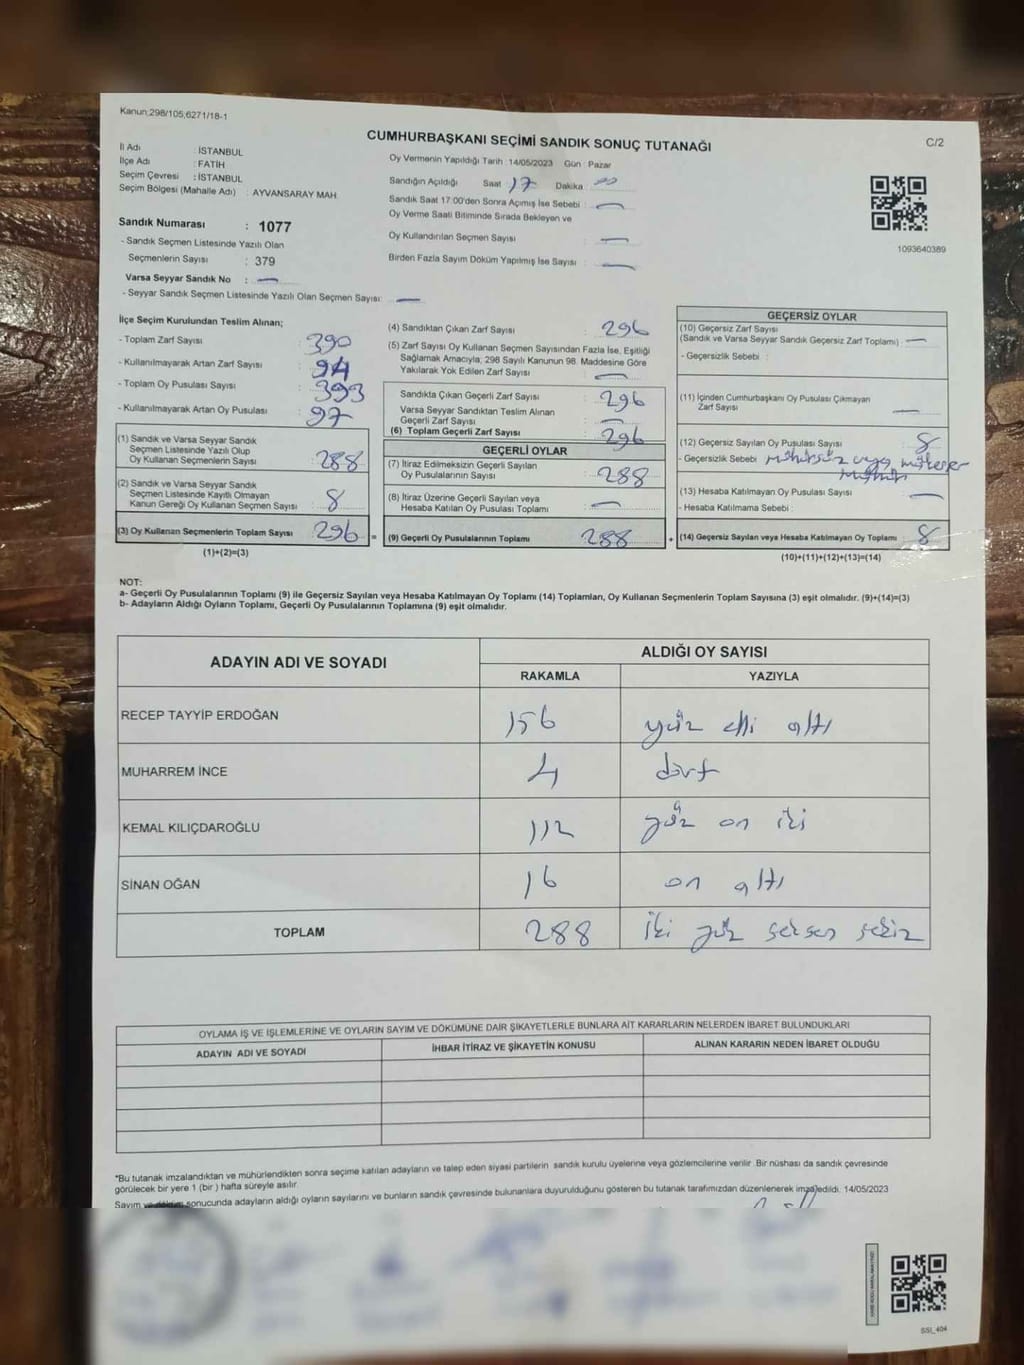 Kanun;298/105,6271/18-1
CUMHURBAŞKANI SEÇİMİ SANDIK SONUÇ TUTANAĞI
C/2
İl Adı : İSTANBUL
İlçe Adı : FATİH
Seçim Çevresi : İSTANBUL
Seçim Bölgesi (Mahalle Adı) : AYVANSARAY MAH
Sandık Numarası : 1077
- Sandık Seçmen Listesinde Yazılı Olan
Seçmenlerin Sayısı : 379
Varsa Seyyar Sandık No : —
- Seyyar Sandık Seçmen Listesinde Yazılı Olan Seçmen Sayısı: —
Oy Vermenin Yapıldığı Tarih : 14/05/2023 Gün : Pazar
Sandığın Açıldığı Saat 17 Dakika 00
Sandık Saat 17:00'den Sonra Açımış İse Sebebi : —
Oy Verme Saati Bitiminde Sırada Bekleyen ve
Oy Kullandırılan Seçmen Sayısı : —
Birden Fazla Sayım Döküm Yapılmış İse Sayısı : —
1093640389
İlçe Seçim Kurulundan Teslim Alınan;
- Toplam Zarf Sayısı : 390
- Kullanılmayarak Artan Zarf Sayısı : 94
- Toplam Oy Pusulası Sayısı : 393
- Kullanılmayarak Artan Oy Pusulası : 97
(1) Sandık ve Varsa Seyyar Sandık
Seçmen Listesinde Yazılı Olup
Oy Kullanan Seçmenlerin Sayısı : 288
(2) Sandık ve Varsa Seyyar Sandık
Seçmen Listesinde Kayıtlı Olmayan
Kanun Gereği Oy Kullanan Seçmen Sayısı : 8
(3) Oy Kullanan Seçmenlerin Toplam Sayısı : 296 =
(1)+(2)=(3)
(4) Sandıktan Çıkan Zarf Sayısı : 296
(5) Zarf Sayısı Oy Kullanan Seçmen Sayısından Fazla İse, Eşitliği
Sağlamak Amacıyla, 298 Sayılı Kanunun 98. Maddesine Göre
Yakılarak Yok Edilen Zarf Sayısı : —
Sandıkta Çıkan Geçerli Zarf Sayısı : 296
Varsa Seyyar Sandıktan Teslim Alınan
Geçerli Zarf Sayısı : —
(6) Toplam Geçerli Zarf Sayısı : 296
GEÇERLİ OYLAR
(7) İtiraz Edilmeksizin Geçerli Sayılan
Oy Pusulalarının Sayısı : 288
(8) İtiraz Üzerine Geçerli Sayılan veya
Hesaba Katılan Oy Pusulası Toplamı : —
(9) Geçerli Oy Pusulalarının Toplamı : 288 +
GEÇERSİZ OYLAR
(10) Geçersiz Zarf Sayısı
(Sandık ve Varsa Seyyar Sandık Geçersiz Zarf Toplamı) : —
- Geçersizlik Sebebi :
(11) İçinden Cumhurbaşkanı Oy Pusulası Çıkmayan
Zarf Sayısı : —
(12) Geçersiz Sayılan Oy Pusulası Sayısı : 8
- Geçersizlik Sebebi mühürsüz veya
(13) Hesaba Katılmayan Oy Pusulası Sayısı : —
- Hesaba Katılmama Sebebi :
(14) Geçersiz Sayılan veya Hesaba Katılmayan Oy Toplamı : 8
(10)+(11)+(12)+(13)=(14)
NOT:
a- Geçerli Oy Pusulalarının Toplamı (9) ile Geçersiz Sayılan veya Hesaba Katılmayan Oy Toplamı (14) Toplamları, Oy Kullanan Seçmenlerin Toplam Sayısına (3) eşit olmalıdır. (9)+(14)=(3)
b- Adayların Aldığı Oyların Toplamı, Geçerli Oy Pusulalarının Toplamına (9) eşit olmalıdır.
ADAYIN ADI VE SOYADI ALDIĞI OY SAYISI
RAKAMLA YAZIYLA
RECEP TAYYİP ERDOĞAN 156 yüz elli altı
MUHARREM İNCE 4 dört
KEMAL KILIÇDAROĞLU 112 yüz on iki
SİNAN OĞAN 16 on altı
TOPLAM 288 iki yüz seksen sekiz
OYLAMA İŞ VE İŞLEMLERİNE VE OYLARIN SAYIM VE DÖKÜMÜNE DAİR ŞİKAYETLERLE BUNLARA AİT KARARLARIN NELERDEN İBARET BULUNDUKLARI
ADAYIN ADI VE SOYADI İHBAR İTİRAZ VE ŞİKAYETİN KONUSU ALINAN KARARIN NEDEN İBARET OLDUĞU
*Bu tutanak imzalandıktan ve mühürlendikten sonra seçime katılan adayların ve talep eden siyasi partilerin sandık kurulu üyelerine veya gözlemcilerine verilir. Bir nüshası da sandık çevresinde
görülecek bir yere 1 (bir) hafta süreyle asılır.
Sayım ve döküm sonucunda adayların aldığı oyların sayılarını ve bunların sandık çevresinde bulunanlara duyurulduğunu gösteren bu tutanak tarafımızdan düzenlenerek imza edildi. 14/05/2023
SSI_404